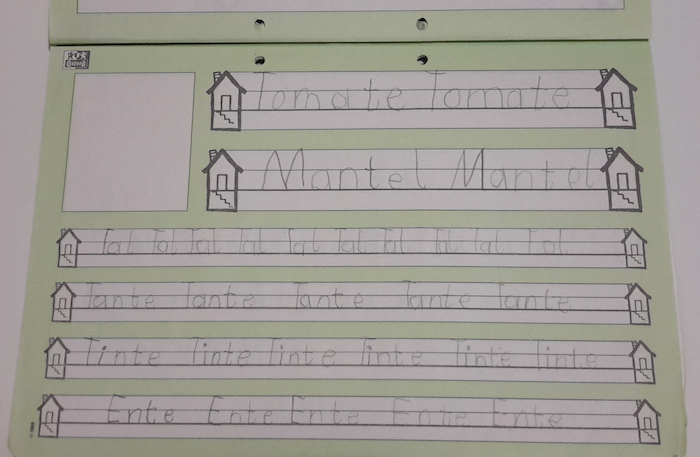 Tomate Tomate
Mantel Mantel
Tal Tal Tal Tal Tal Tal Tal Tal Tal Tal
Tante Tante Tante Tante Tante
Tinte Tinte Tinte Tinte Tinte Tinte
Ente Ente Ente Ente Ente